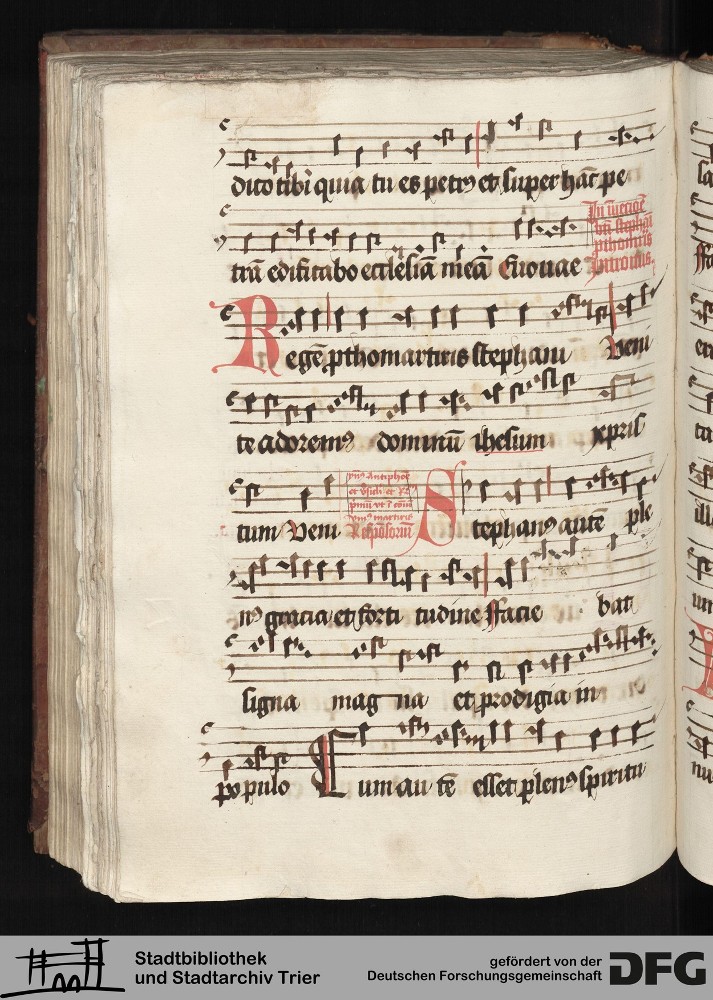 dico tibi quia tu es petrꝰ et super hāc pe
trā edificabo ecclesiā meā Euouae
In inuēcōe
sti stephāi
ꝓthomris
Inroitus.
Regē ꝓthomartiris stephani Veni
te adoremꝰ dominū ihesum xpris
tum Veni
Responsoriū
Stephanꝰ autē ple
nꝰ gracia et forti tudine ffacie bat
signa mag na et prodigia in
populo Cum au tē esset plenꝰ spiritu
Stadtbibliothek
und Stadtarchiv Trier
gefördert von der
Deutschen Forschungsgemeinschaft
DFG